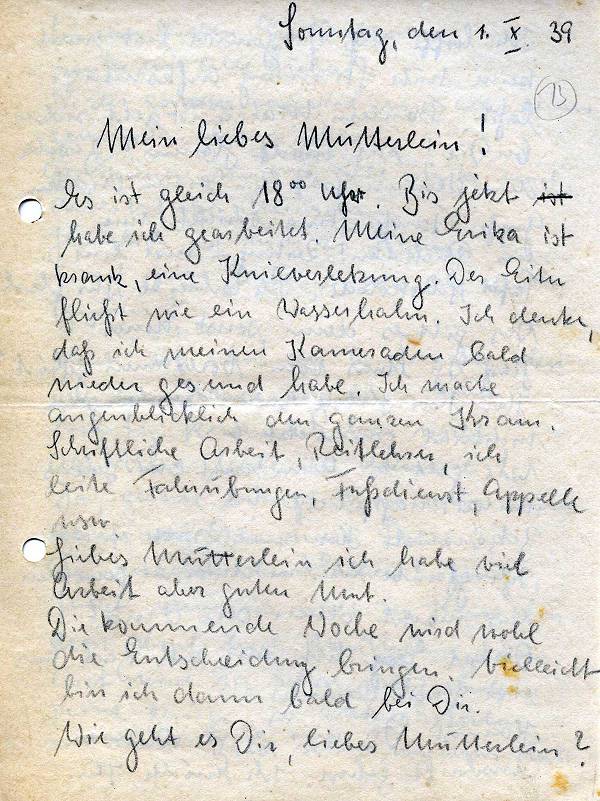 Sonntag, den 1. X. 39
15
Mein liebes Mütterlein!
Es ist gleich 18⁰⁰ Uhr. Bis jetzt ist
habe ich gearbeitet. Meine Erika ist
krank, eine Knieverletzung. Der Eiter
fließt wie ein Wasserhahn. Ich denke,
daß ich meinen Kameraden bald
wieder gesund habe. Ich mache
augenblicklich den ganzen Kram.
Schriftliche Arbeit, Reitlehrer, ich
leite Fahrübungen, Fußdienst, Appelle
usw.
Liebes Mütterlein ich habe viel
Arbeit aber guten Mut.
Die kommende Woche wird wohl
die Entscheidung bringen. Vielleicht
bin ich dann bald bei Dir.
Wie geht es Dir, liebes Mütterlein?